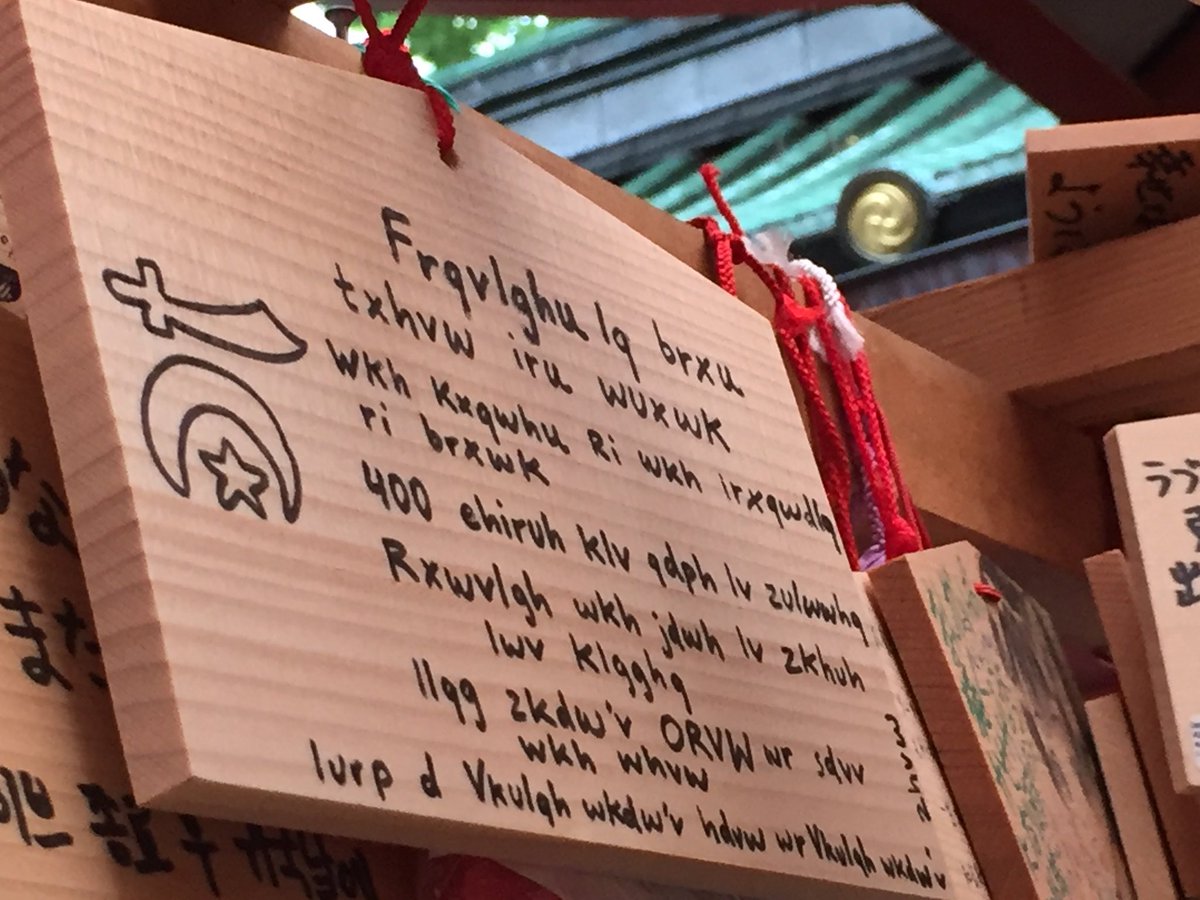 Frqvlghu lq brxu
txhvw iru wuxwk
wkh Kxqwhu Ri wkh irxqwdlq
ri brxwk
400 ehiruh klv qdph lv zulwwhq
Rxwvlgh wkh jdwh lv zkhuh
lwv klgghq
Ilqg zkdw'v ORVW wr sdvv
wkh whvw
Iurp d Vkulqh wkdw'v hdvw wr Vkulqh wkdw'v zhvw